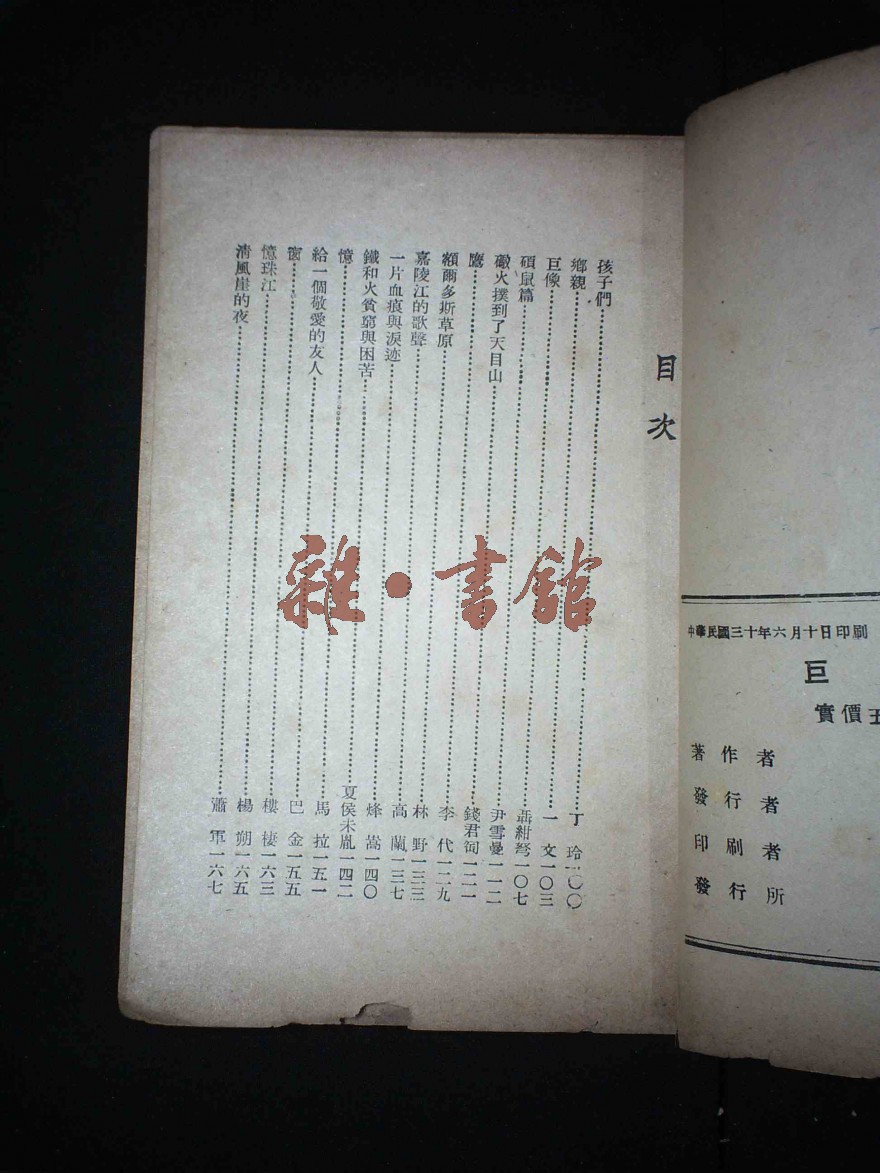 目次
孩子們……丁玲一〇〇
鄉親……一文一〇三
巨像……聶紺弩一〇七
碩鼠篇……尹雪曼一一二
礮火撲到了天目山……錢君匋一二一
鷹……李代一二九
額爾多斯草原……林野一三三
嘉陵江的歌聲……高蘭一三七
一片血痕與淚迹……烽嵩一四〇
鐵和火貧窮與困苦……夏侯未胤一四二
憶……馬拉一五一
給一個敬愛的友人……巴金一五五
窗……棲一六三
憶珠江……楊朔一六五
清風崖的夜……蕭軍一六七
雜·書館
中華民國三十年六月十日印刷
巨
實價五
著作者
發行者
印刷者
發行所